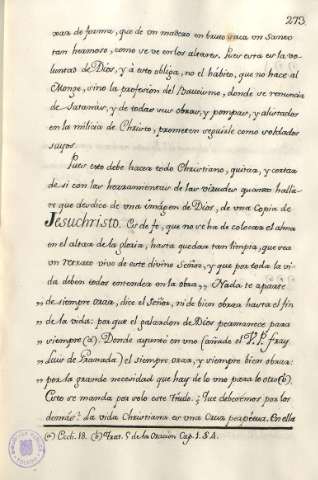 273
man de forma, que de un madero en bruto saca un Santo
tan hermoso, como se ve en los altares. Pues esta es la vo-
luntad de Dios, y à esto obliga, no el hábito, que no hace al
Monge, sino la profesion del Bautismo, donde se renuncia
de Satanás, y de todas sus obras, y pompas, y alistados
en la milicia de Christo, prometen seguirle como soldados
suyos.
Pues esto debe hacer todo Christiano, quitar, y cortar
de si con las herramientas de las virtudes quanto halla-
re que desdice de una imágen de Dios, de una Copia de
Jesuchristo. Es de fe, que no se ha de colocar el alma
en el altar de la gloria, hasta quedar tan limpia, que sea
un retrato vivo de este divino Señor, y que por toda la vi-
da deben todos entender en la obra,, Nada te aparte
,, de siempre orar, dice el Señor, ni de bien obrar hasta el fin
,, de la vida: por que el galardon de Dios permanece para
,, siempre (a). Donde ayunto en uno (añade el V. P. fray
,, Luis de Granada) el siempre orar, y siempre bien obrar:
,, por la grande necesidad que hay de lo uno para lo otro (b).
Esto se manda por solo este Titulo. ¿Que deberémos por los
demás? La vida Christiana es una Cruz perpétua. En ella
(a) Ecli. 18. (b) Trat. 5 de la Oracion Cap. 1. §. 4.